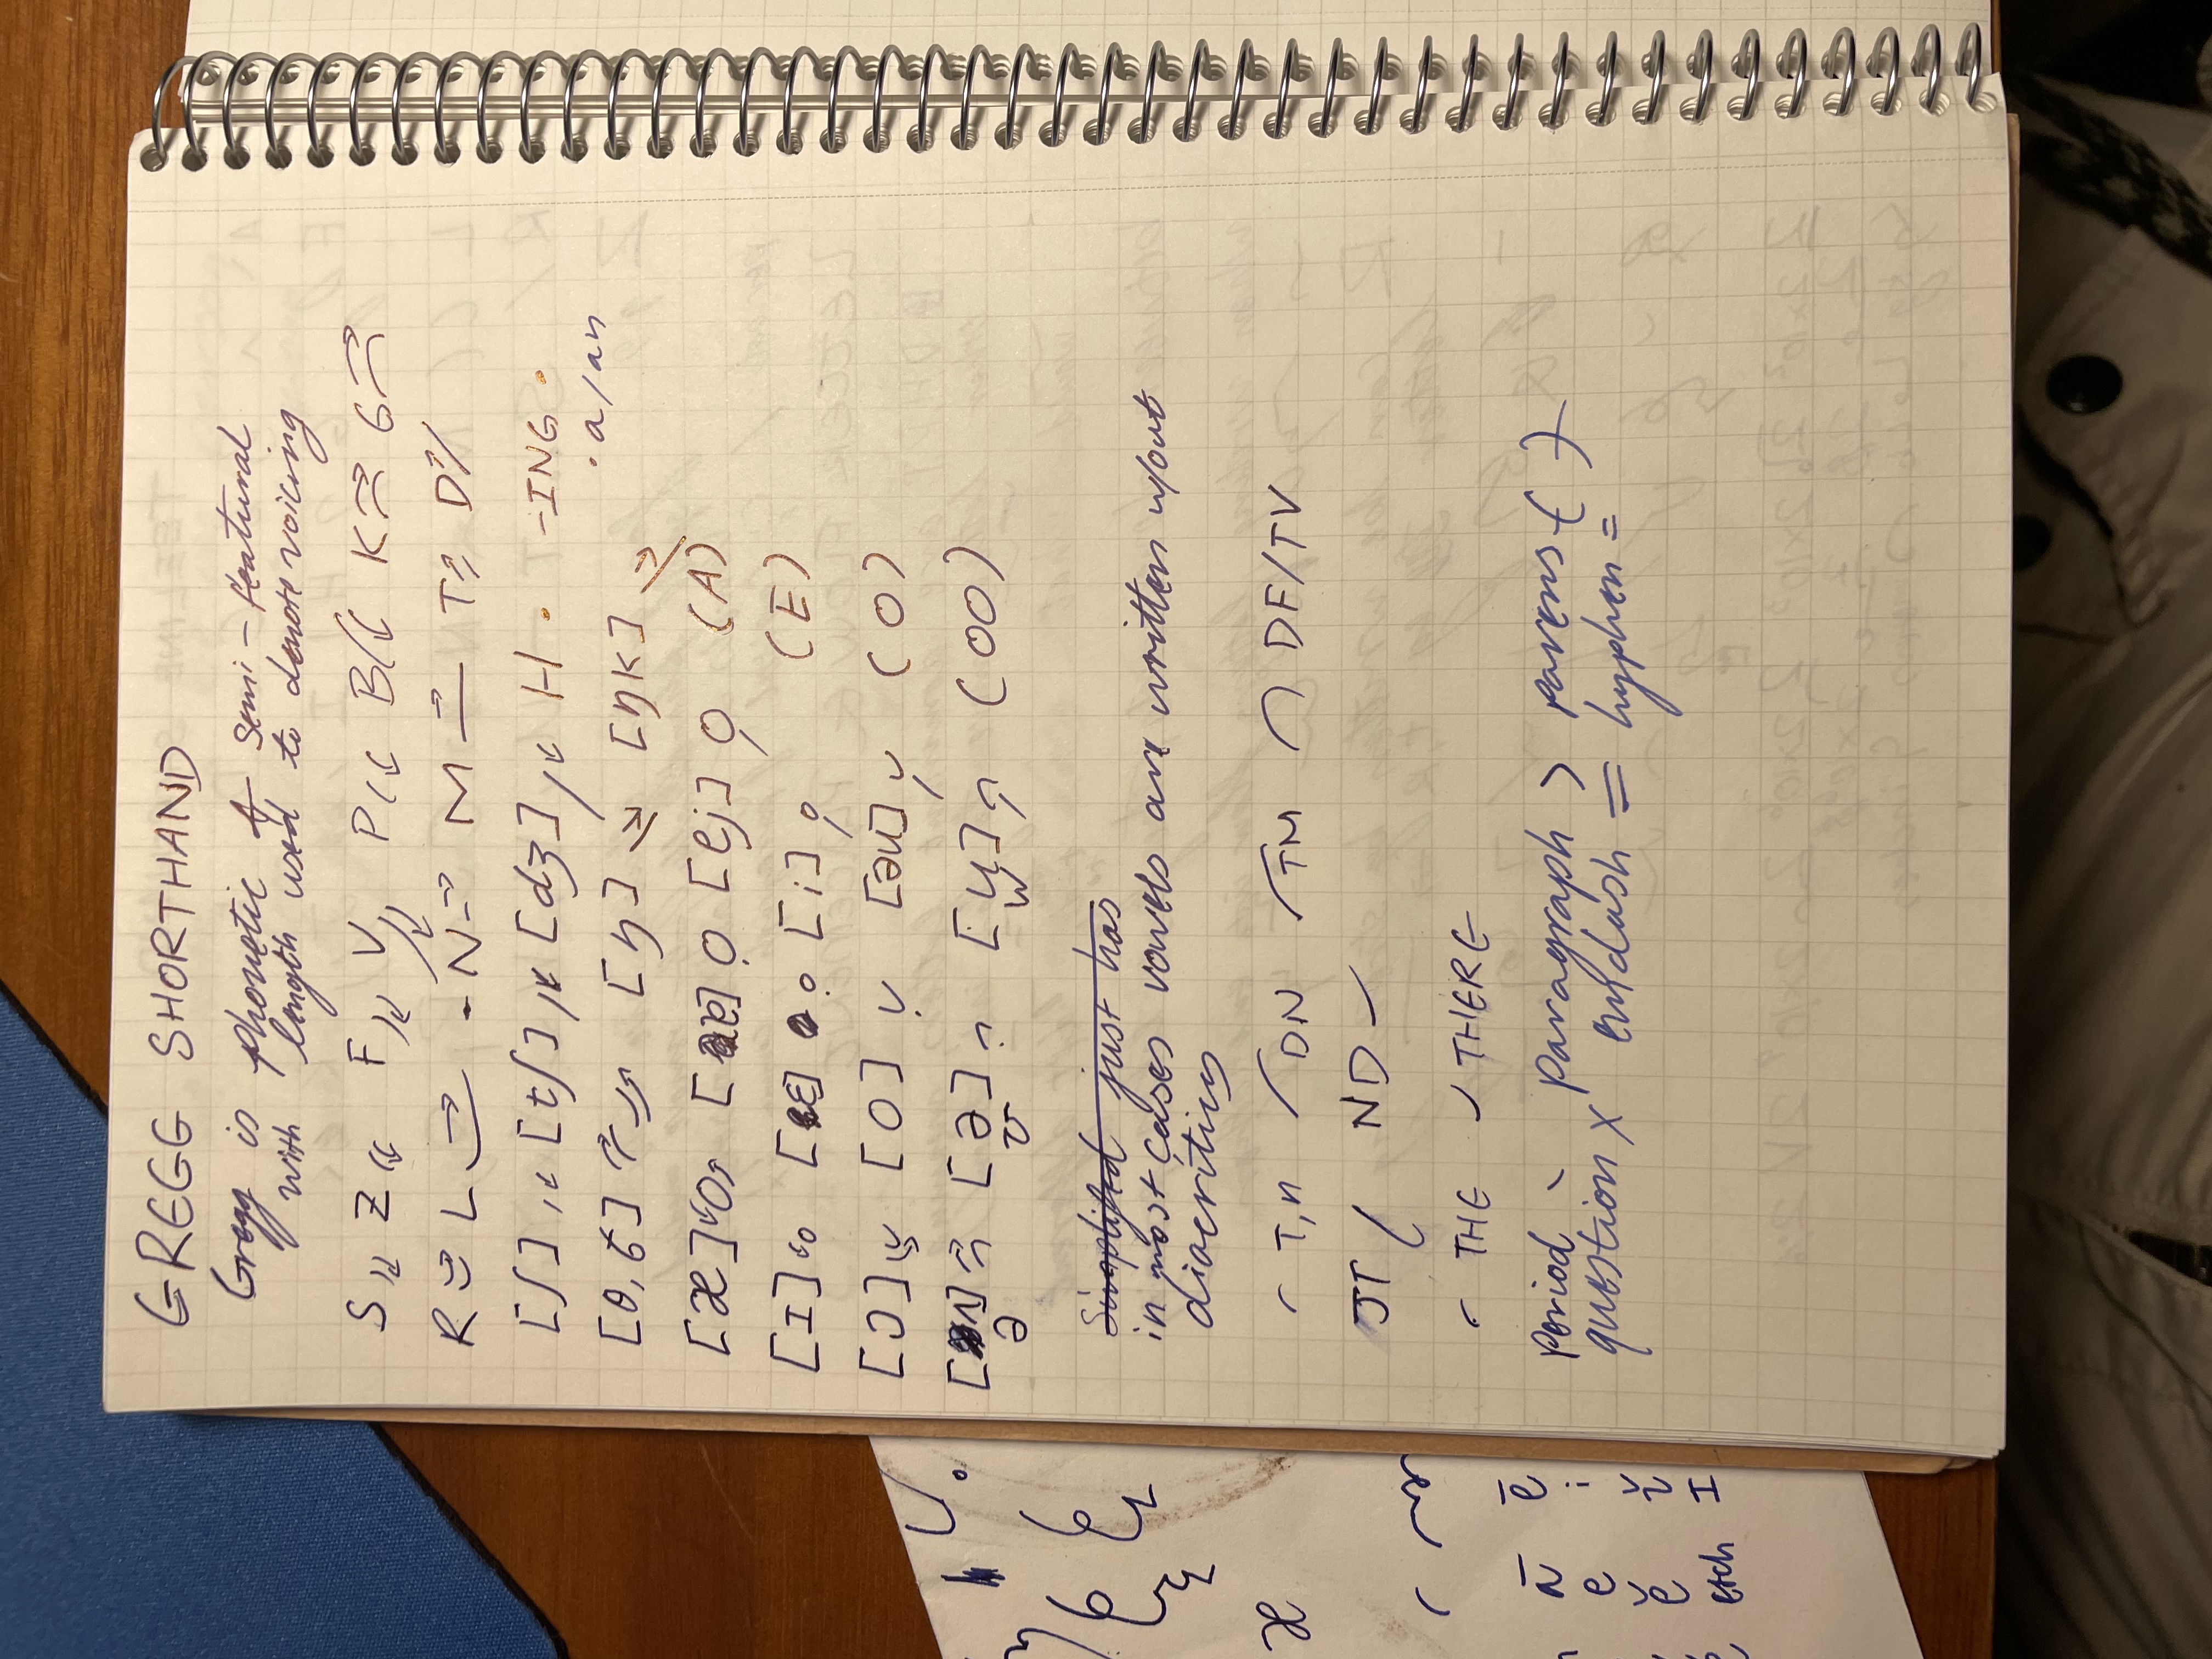 GREGG SHORTHAND
Gregg is phonetic & semi-featural
with length used to denote voicing
S Z F V P B K G
R L N M T D
[ʃ] [tʃ] [dʒ] H · -ING ·
[θ, ð] [ŋ] [ŋk] · a/an
[æ] [e] [ej] (A)
[I] [ɛ] [i] (E)
[ɔ] [o] [əu] (O)
[ʌ] ə [ə] ʊ [u] w (OO)
Simplified just has
in most cases vowels are written w/out
diacriting
T,n DN TM DF/TV
JT ND
THE THERE
Period paragraph > parens ( )
question x em dash = hyphen =
æ
ē
e
ĕ
etch I